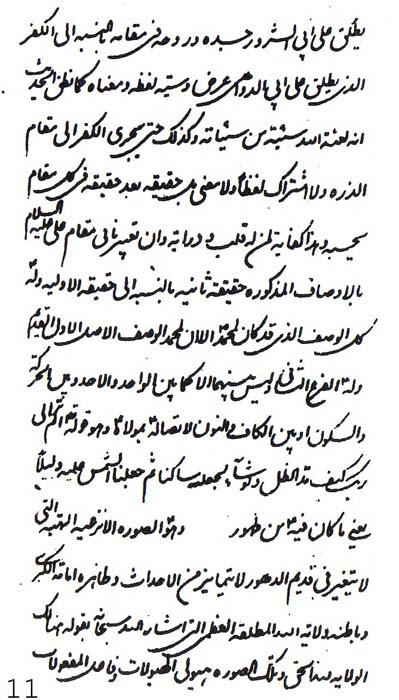 يطلق على ابى الشرور جسده و روحه فى مقامه بالنسبه الى الكفر
الذى يطلق على ابى الدواهى عرض وسيئه لفظه ومعناه كما نطق الحديث
انه لعنة الله سيئية من سيئاته وكذلك حتى يجرى الكفر الى مقام
الذره ولا اشتراك لفظاً ولا معنى بل حقيقه بعد حقيقه فى كل مقام
بحسبه وهذا كفاية لمن له قلب و درايه وان تعبيرنا فى مقام على عليه السلام
بالاوصاف المذكوره حقيقة ثانيه بالنسبه الى حقيقه الاوليه وله
كل الوصف الذى قد كان لمحمد الا ان لمحمد الوصف الاصل الاول القديم
وله الفرع الثانى وليس بينهما الا كما بين الواحد والاحد وبين الحركة
والسكون او بين الكاف والنون لاتصاله بمولاه وهو قوله الم تر الى
ربك كيف مد الظل ولو شاء لجعله ساكنا ثم جعلنا الشمس عليه دليلاً
يعنى ما كان فيه من ظهور وهو الصوره الانزعيه الهيه التى
لا تتغير فى قديم الدهور لا بتمايز من الاحداث وظاهره امامة الكبرى
وباطنه ولاية الله المطلقه العظمى التى اشار الله سبحانه بقوله هنالك
الولايه لله الحق وتلك الصوره هيولى الهيولات وفاعل المفعولات
11